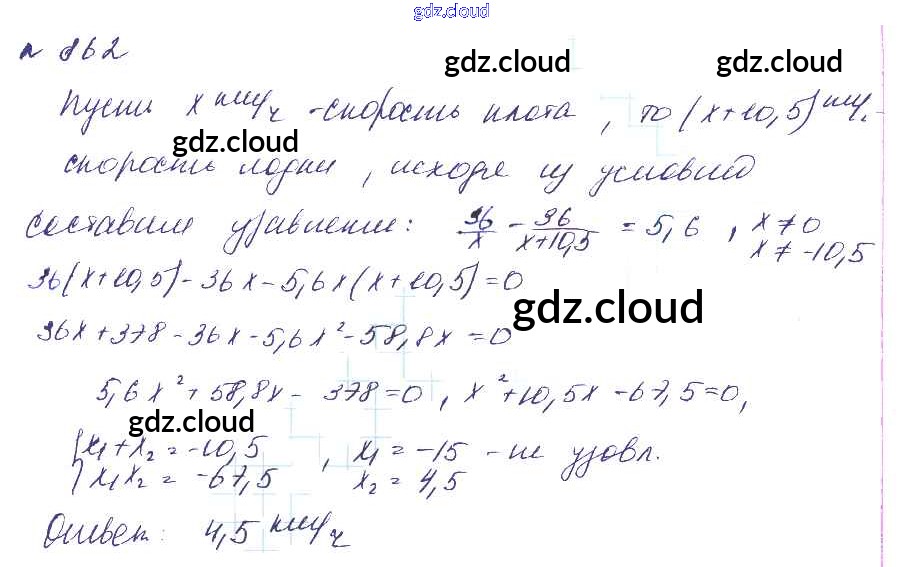 gdz.cloud
№ 862
gdz.cloud gdz.cloud
Пусть x км/ч - скорость плота, то (x+10,5) км/ч -
gdz.cloud
скорость лодки, исходя из условий
составим уравнение: 36/x - 36/(x+10,5) = 5,6, x ≠ 0
x ≠ -10,5
36(x+10,5) - 36x - 5,6x(x+10,5) = 0
gdz.cloud
36x + 378 - 36x - 5,6x² - 58,8x = 0
5,6x² + 58,8x - 378 = 0, x² + 10,5x - 67,5 = 0,
gdz.cloud
x₁ + x₂ = -10,5, x₁ = -15 - не удовл.
x₁x₂ = -67,5 x₂ = 4,5
Ответ: 4,5 км/ч